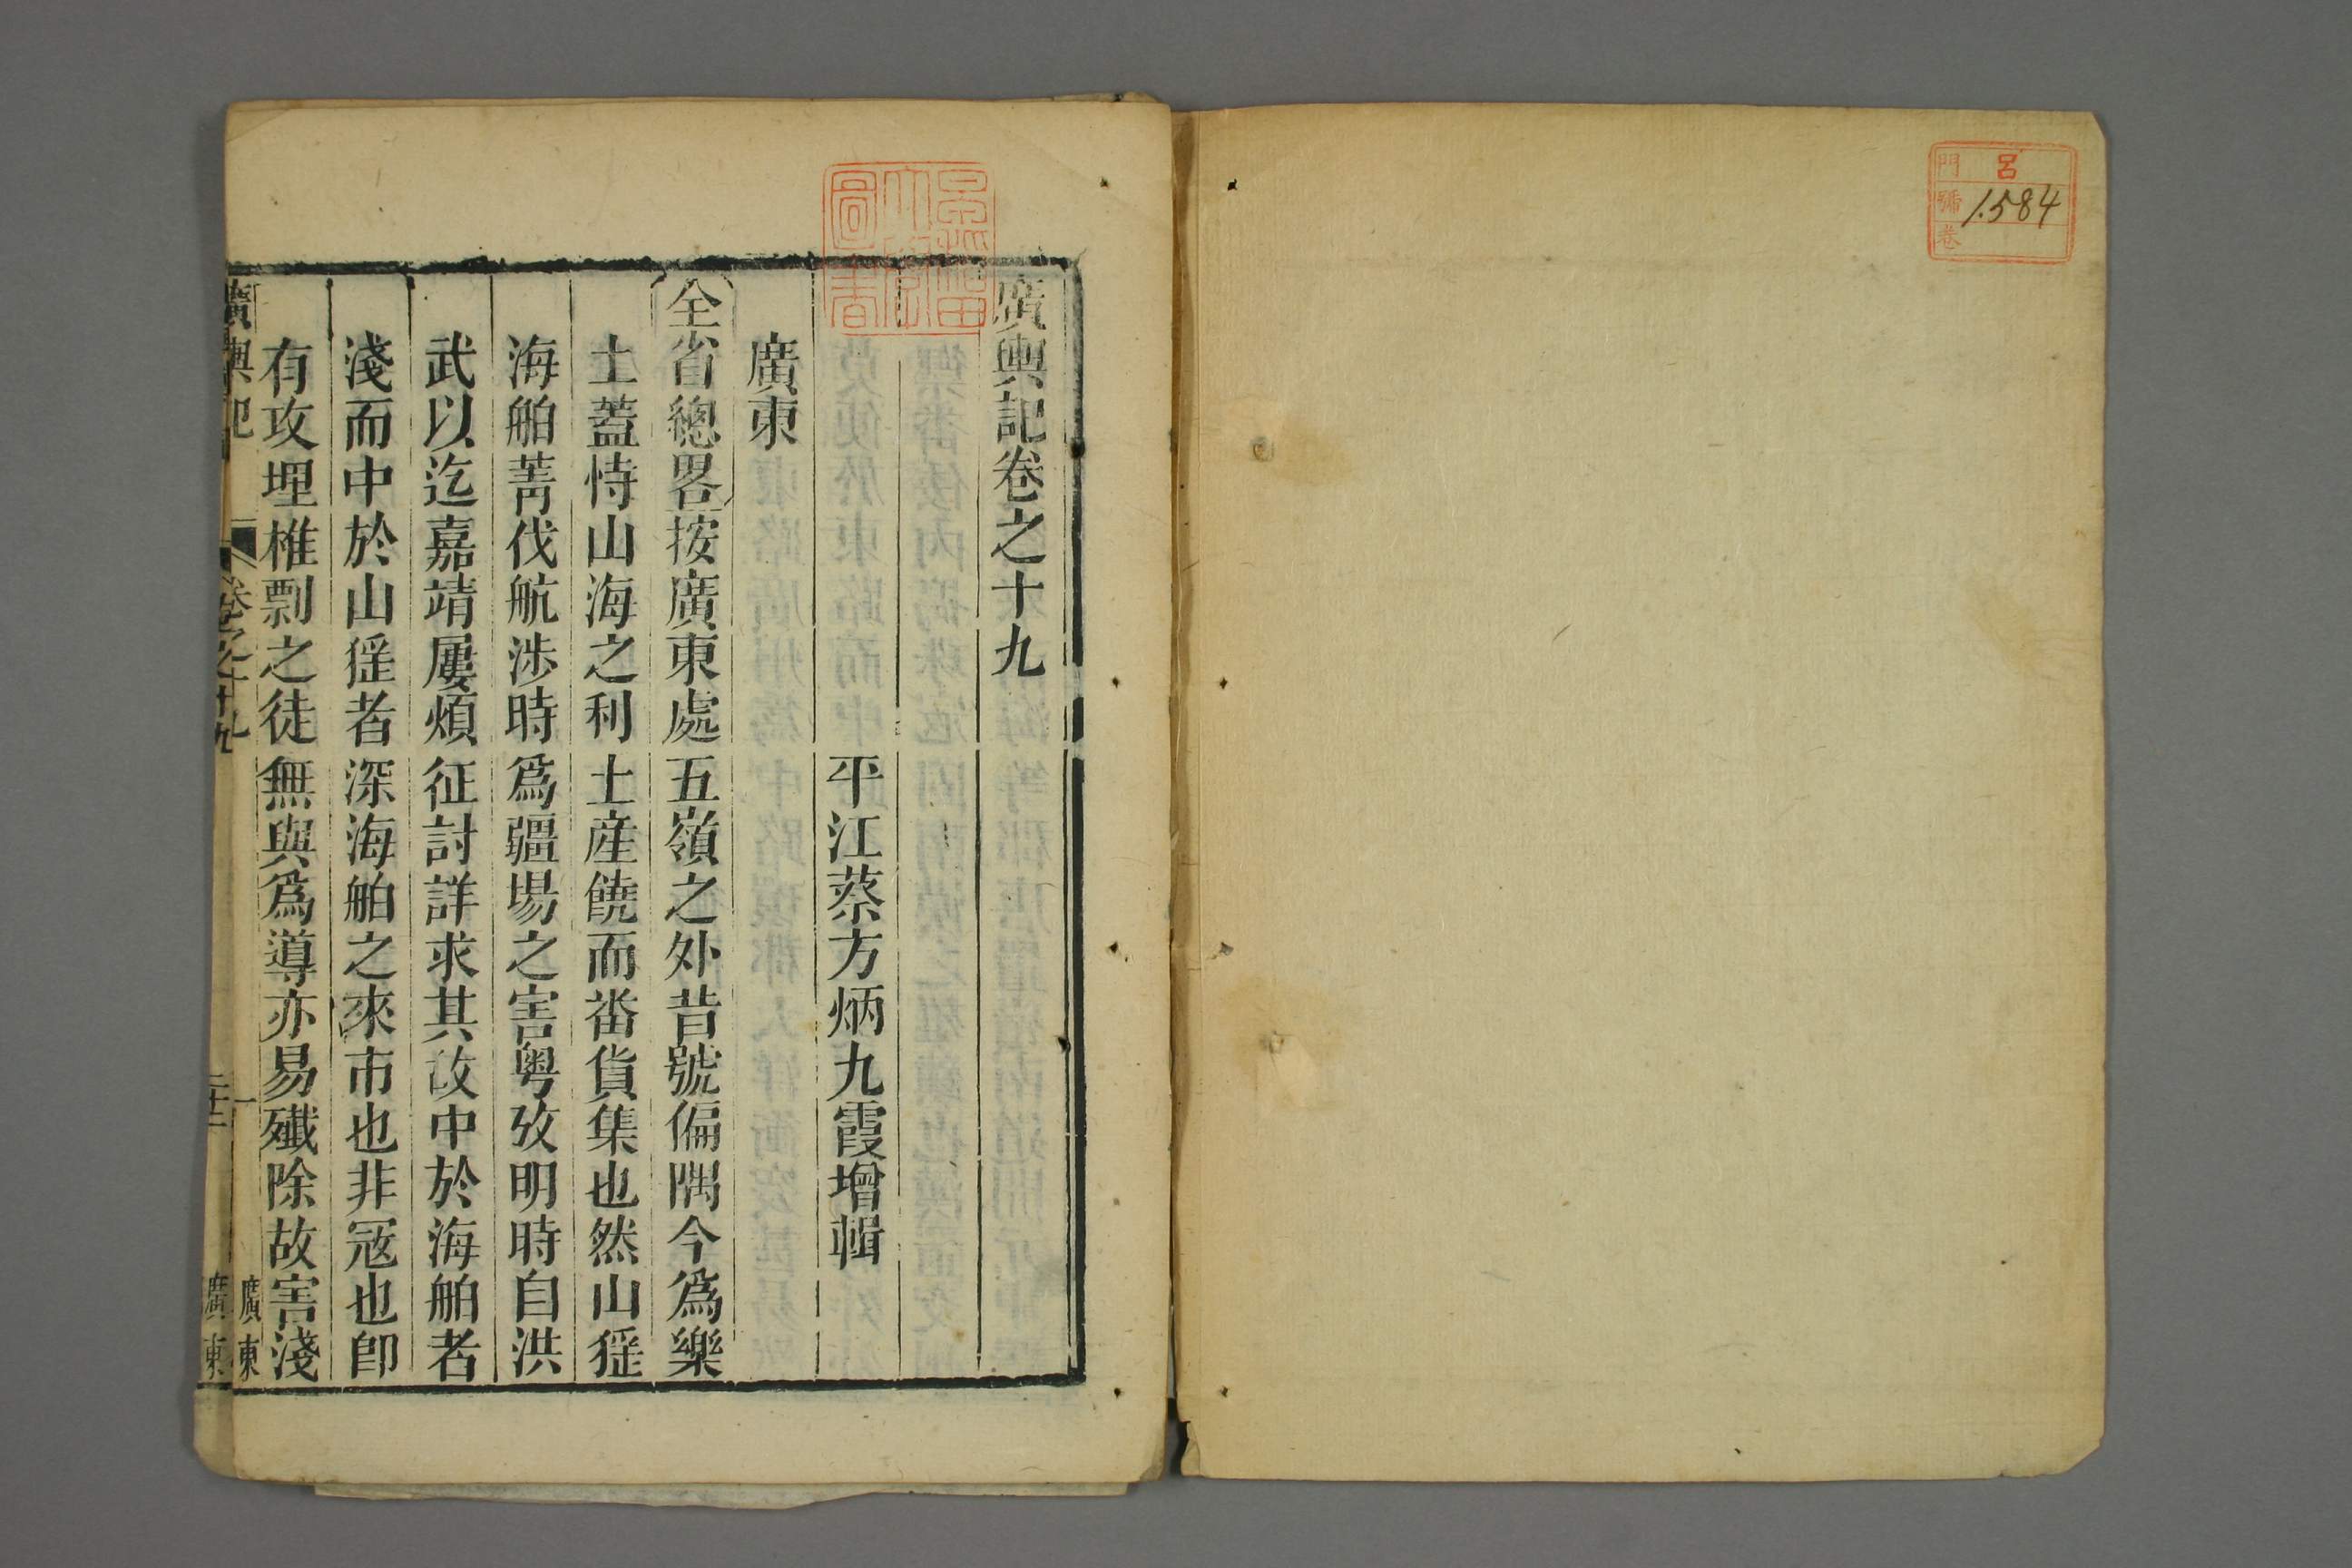 門 呂
號 1584
卷
廣輿記卷之十九
平江蔡方炳九霞增輯
廣東
全省總畧按廣東處五嶺之外昔號偏隅今爲樂
土蓋恃山海之利土産饒而畨貨集也然山猺
海舶菁伐航涉時爲疆場之害粤攷明時自洪
武以迄嘉靖屢煩征討詳求其故中於海舶者
淺而中於山猺者深海舶之來市也非冦也卽
有攻埋椎剽之徒無與爲導亦易殲除故害淺
廣輿記 卷之十九 一 廣東